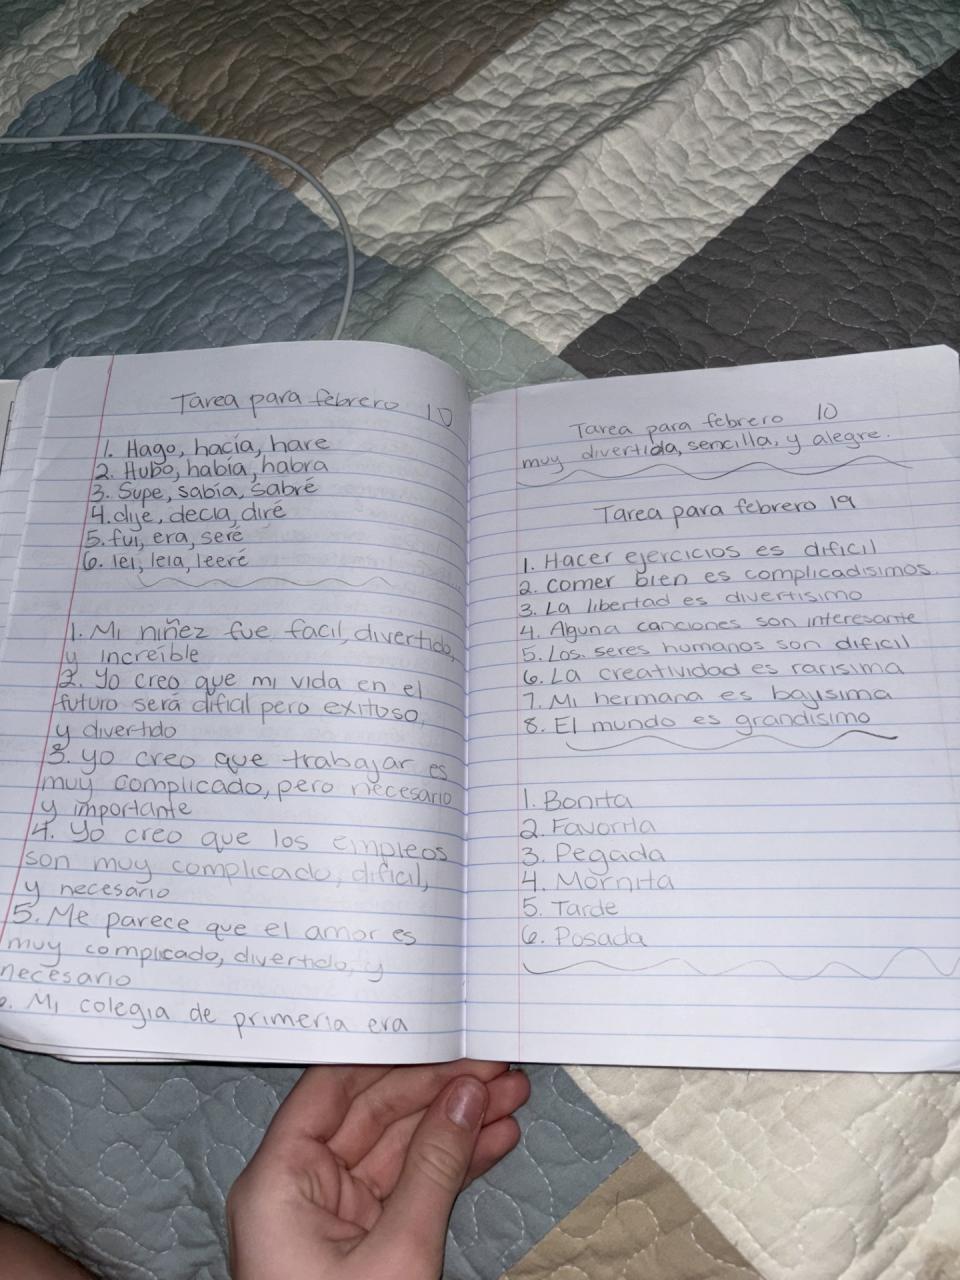 Tarea para febrero 10
1. Hago, hacía, hare
2. Hubo, había, habra
3. Supe, sabía, sabré
4. dije, decia, diré
5. fui, era, seré
6. lei, leia, leeré
1. Mi niñez fue facil, divertido,
y increíble
2. Yo creo que mi vida en el
futuro será dificil pero exitoso,
y divertido
3. yo creo que trabajar es
muy complicado, pero necesario
y importante
4. Yo creo que los empleos
son muy complicado, dificil,
y necesario
5. Me parece que el amor es
muy complicado, divertido, y
necesario
6. Mi colegia de primeria era
Tarea para febrero 10
muy divertida, sencilla, y alegre.
Tarea para febrero 19
1. Hacer ejercicios es dificil
2. comer bien es complicadisimos
3. La libertad es divertisimo
4. Alguna canciones son interesante
5. Los seres humanos son dificil
6. La creatividad es rarisima
7. Mi hermana es bajisima
8. El mundo es grandisimo
1. Bonita
2. Favorita
3. Pegada
4. Mornita
5. Tarde
6. Posada